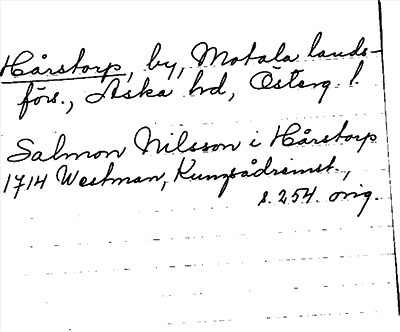 Hårstorp, by, Motala lands-
förs., Aska hd, Österg. l.
Salmon Nilsson i Hårstorp
1714 Westman, Kungsådremst.,
s. 254. orig.